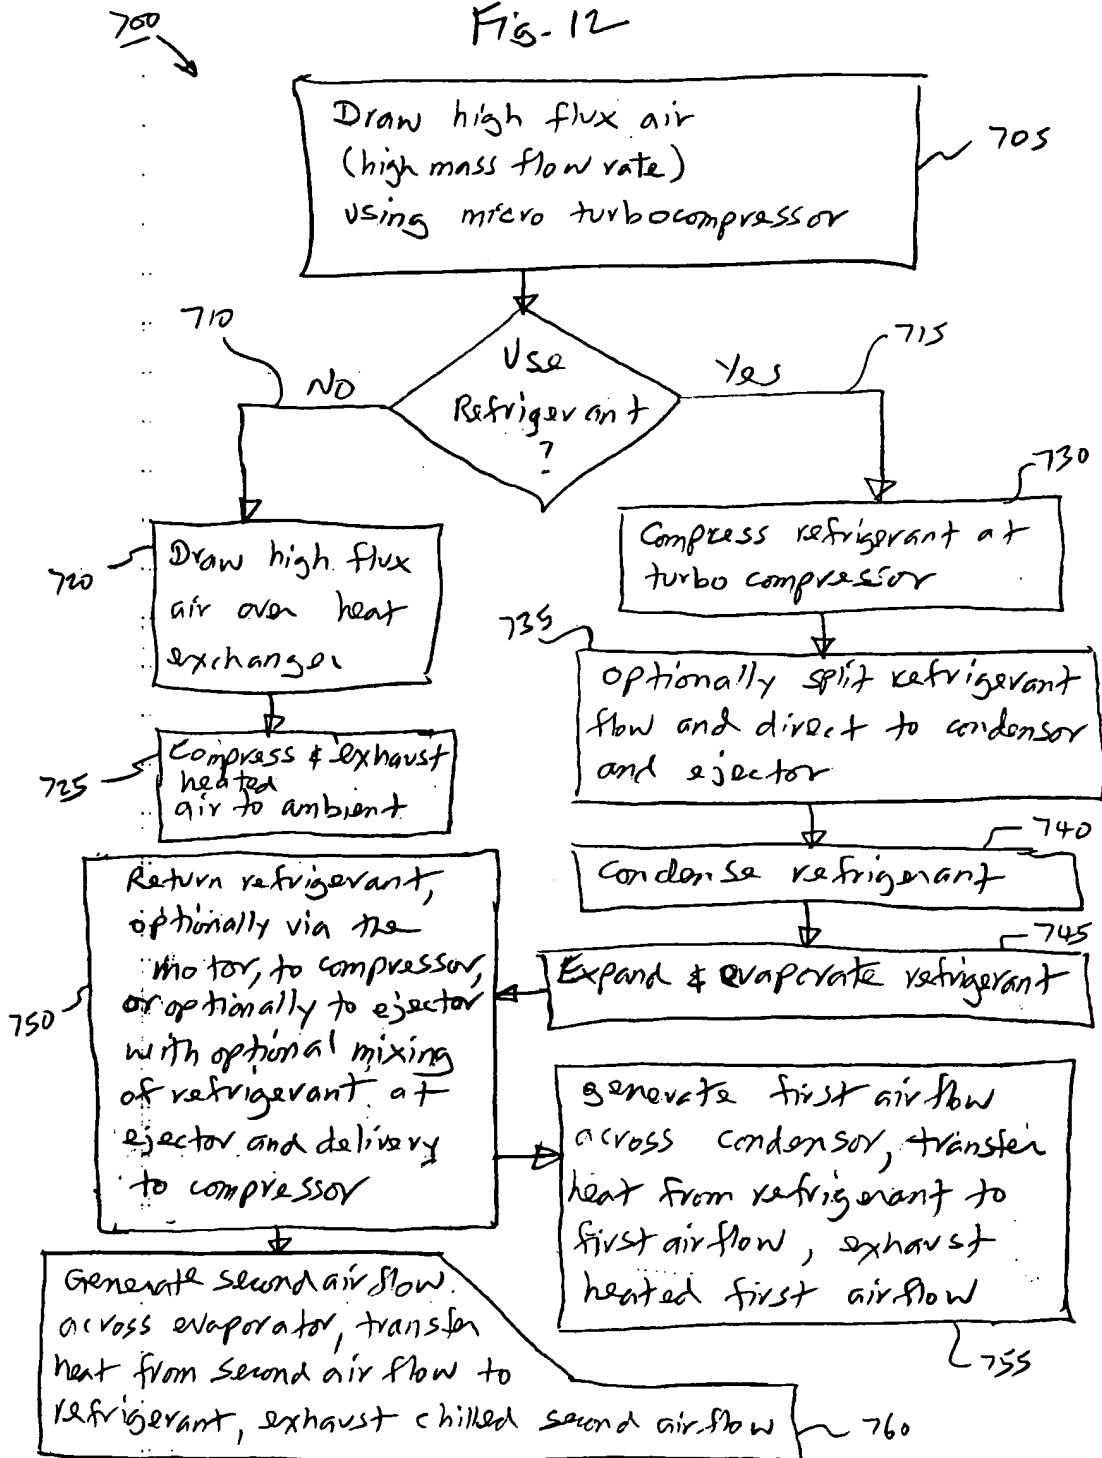 700
Fig. 12
Draw high flux air
(high mass flow rate)
using micro turbocompressor
705
Use
Refrigerant
?
710
No
Yes
715
720
Draw high flux
air over heat
exchanger
725
Compress & exhaust
heated
air to ambient
730
Compress refrigerant at
turbo compressor
735
optionally split refrigerant
flow and direct to condensor
and ejector
740
Condense refrigerant
745
Expand & evaporate refrigerant
750
Return refrigerant,
optionally via the
motor, to compressor,
or optionally to ejector
with optional mixing
of refrigerant at
ejector and delivery
to compressor
generate first airflow
across condensor, transfer
heat from refrigerant to
first airflow, exhaust
heated first airflow
755
Generate second airflow
across evaporator, transfer
heat from second air flow to
refrigerant, exhaust chilled second airflow
760